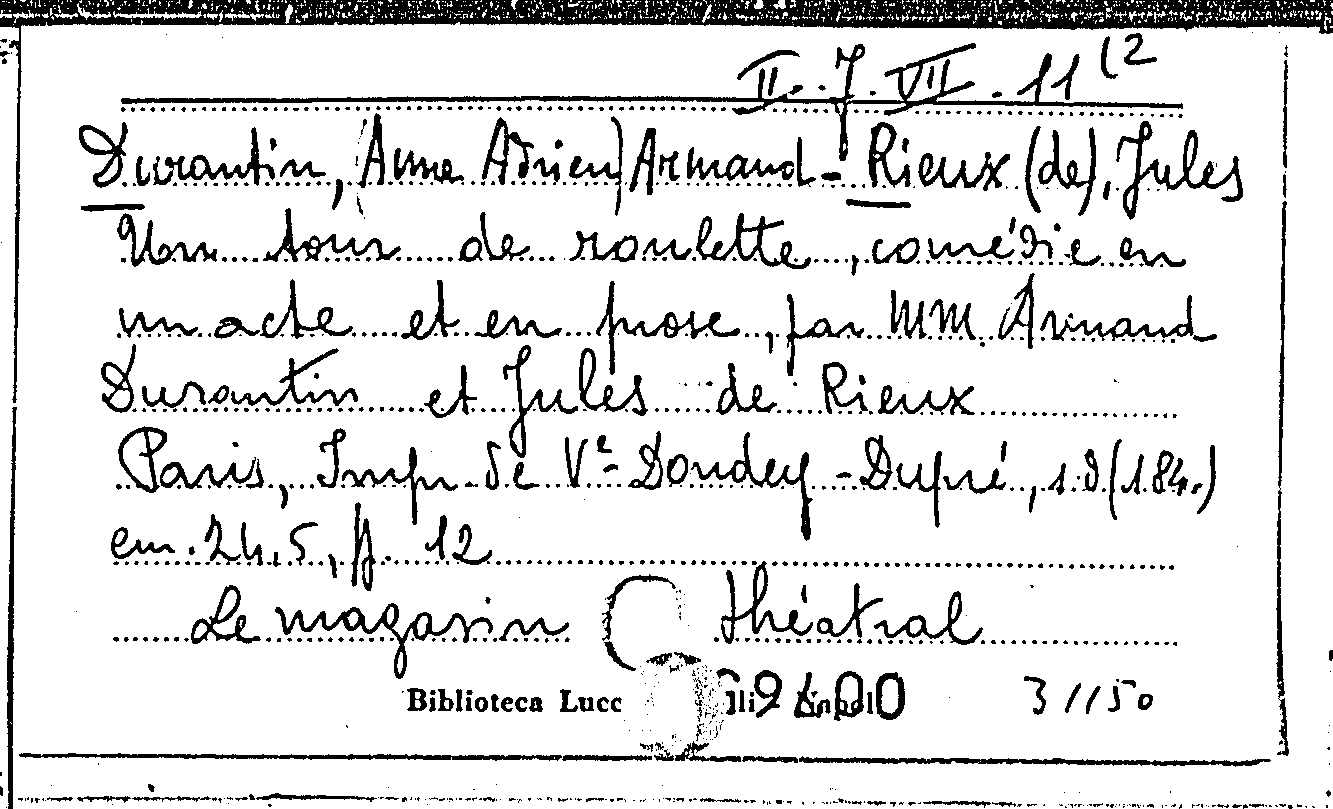 II. J. VII. 11 (2
Durantin, (Anne Adrien) Armand - Rieux (de), Jules
Un tour de roulette, comédie en
un acte et en prose, par MM. Armand
Durantin et Jules de Rieux
Paris, Impr. de Ve Dondey-Dupré, s.d (184.)
cm. 24,5, p. 12
Le magasin théatral
Biblioteca Lucc